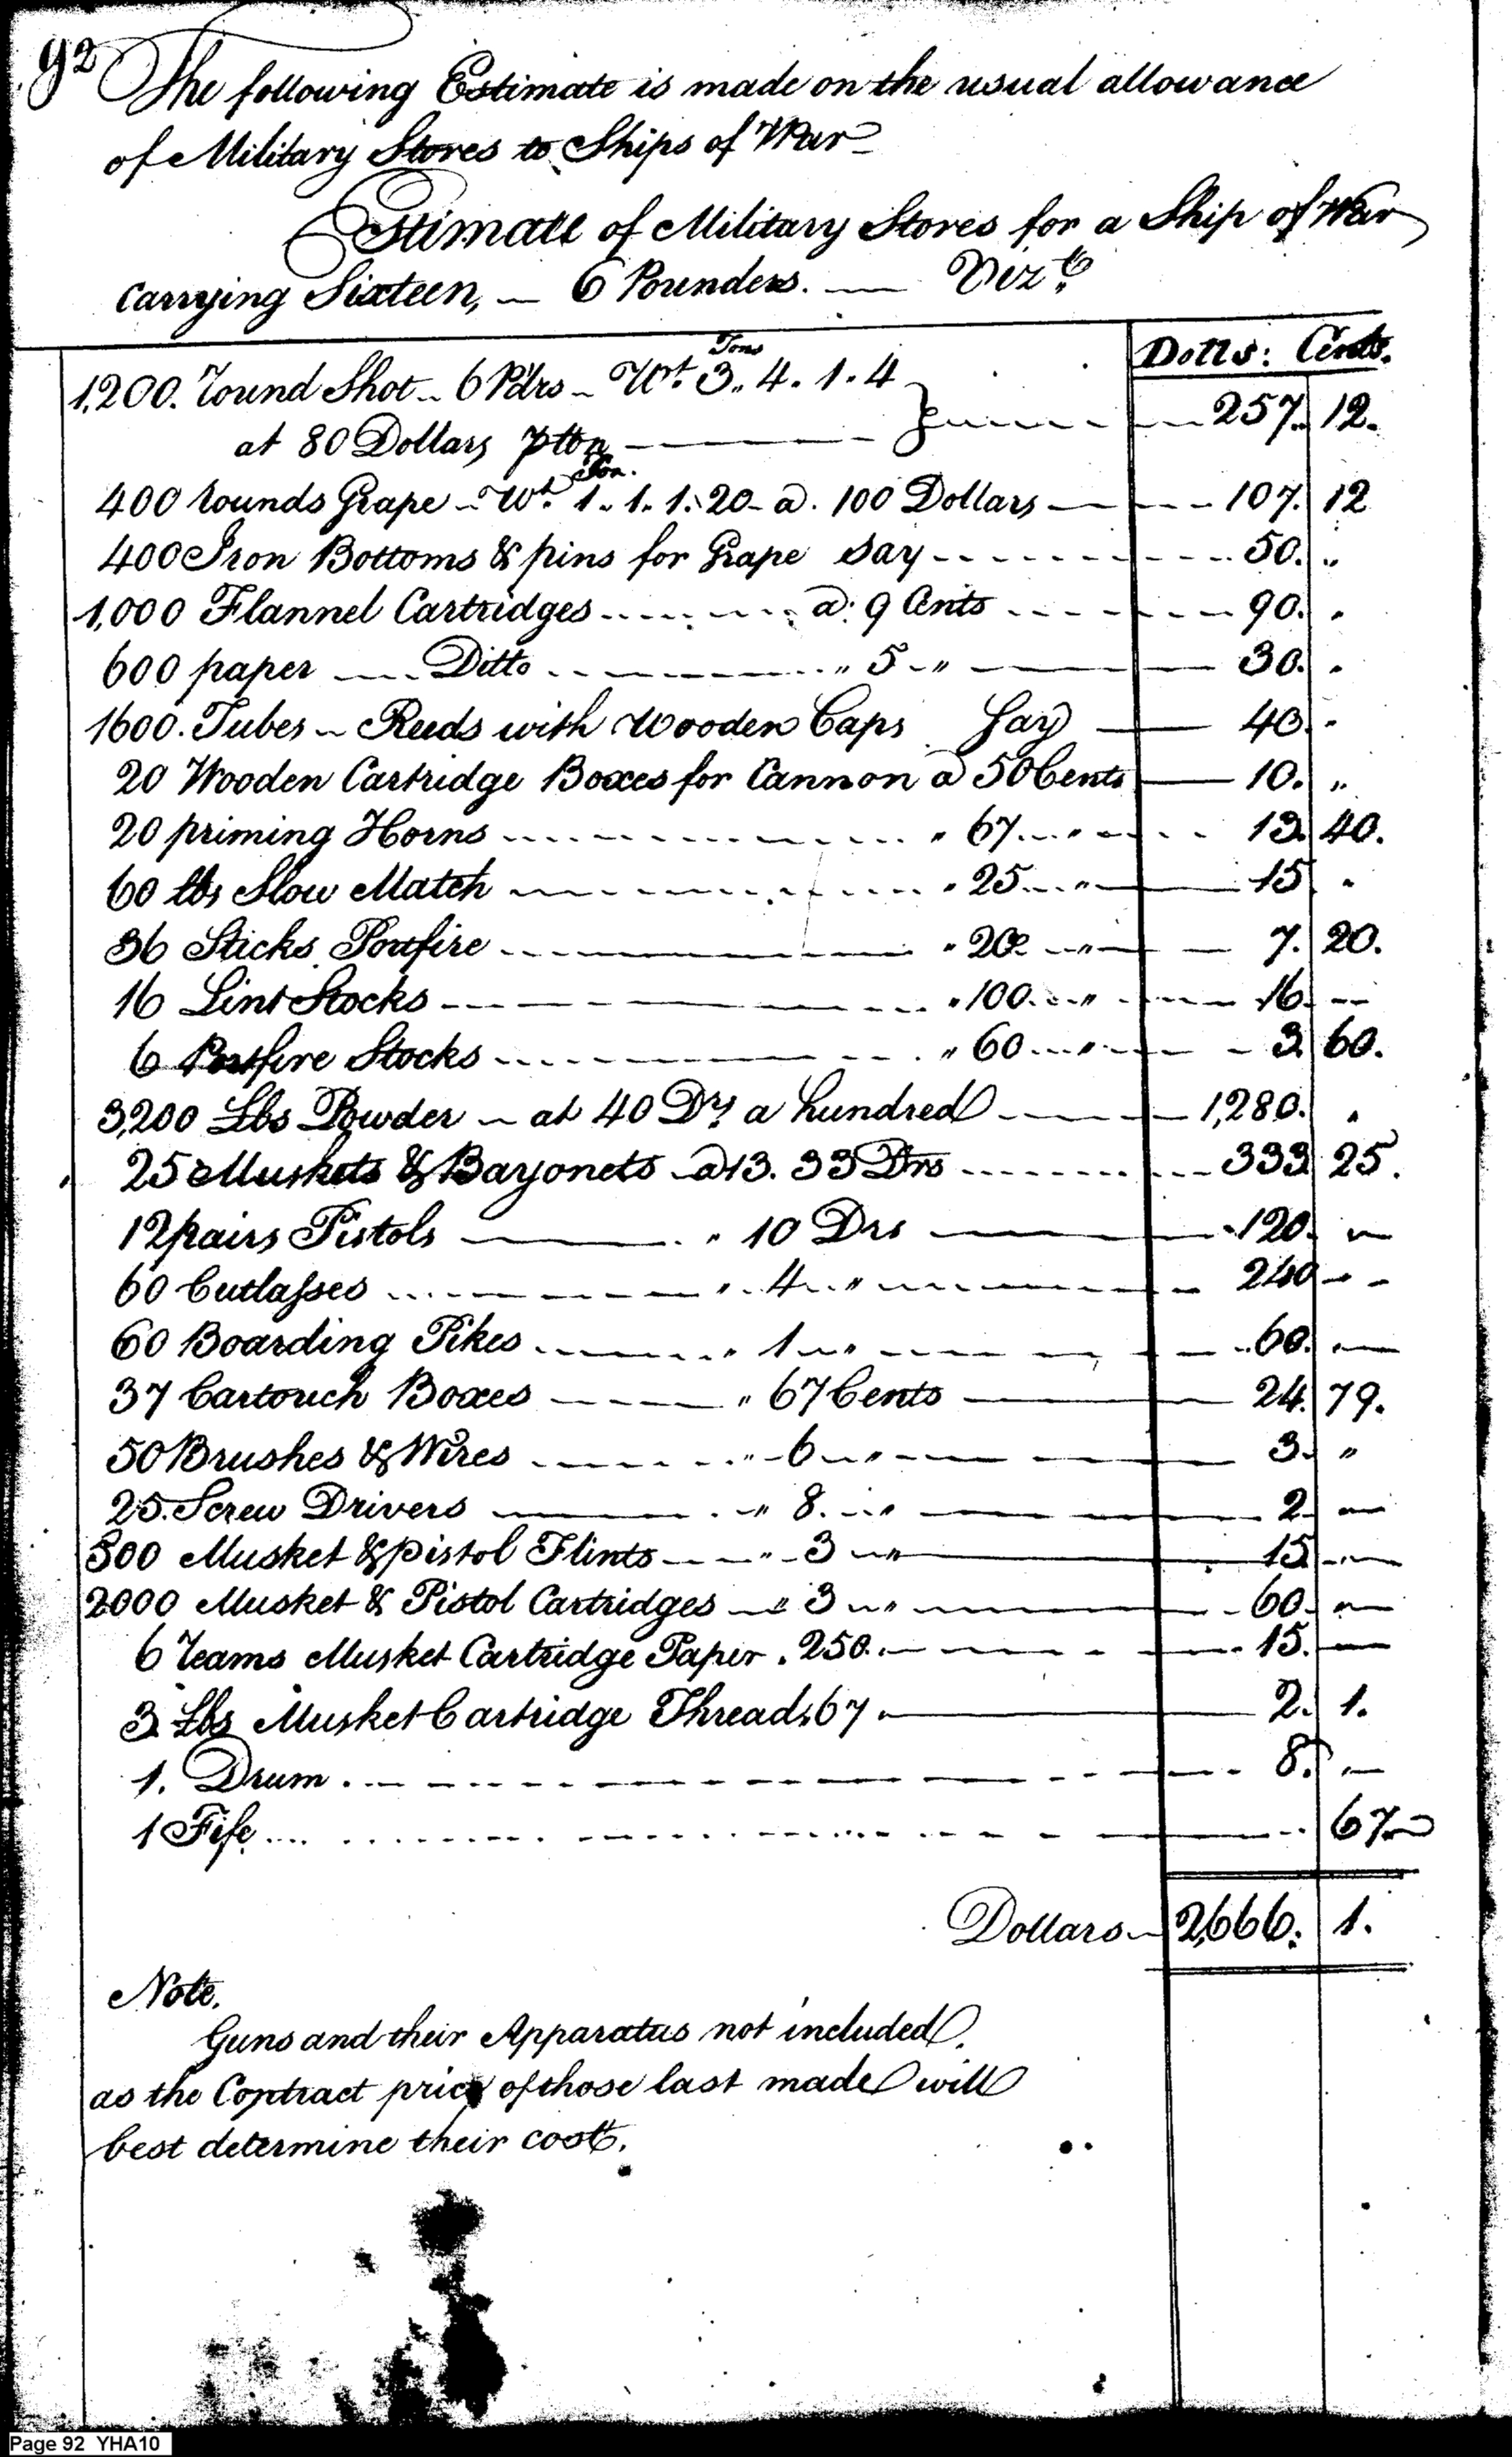 92
The following Estimate is made on the usual allowance
of Military Stores to Ships of War
Estimate of Military Stores for a Ship of War
carrying Sixteen, — 6 Pounders. — Vizt.
Dolls: Cents.
Tons
1,200. round Shot — 6 Pdrs — Wt. 3.. 4. 1. 4
at 80 Dollars pr ton — 257. 12.
Ton.
400 rounds Grape — Wt. 1. 1. 1. 20 - a. 100 Dollars — 107. 12
400 Iron Bottoms & pins for Grape say — 50. "
1,000 Flannel Cartridges a: 9 Cents — 90. "
600 paper — Ditto " 5 " — 30. "
1600. Tubes — Reeds with Wooden Caps Say — 40. "
20 Wooden Cartridge Boxes for Cannon a 50 Cents — 10. "
20 priming Horns " 67 " — 13. 40.
60 lbs Slow Match " 25 " — 15 "
36 Sticks Portfire " 20 " — 7. 20.
16 Lint Stocks " 100 " — 16. —
6 Portfire Stocks " 60 " — 3. 60.
3,200 Lbs Powder — at 40 Drs. a hundred — 1,280. "
25 Muskets & Bayonets a 13. 33 Drs — 333 25.
12 pairs Pistols " 10 Drs — 120. —
60 Cutlasses " 4 " — 240 —
60 Boarding Pikes " 1 " — 60. —
37 Cartouch Boxes " 67 Cents — 24. 79.
50 Brushes & Wires " 6 " — 3. "
25. Screw Drivers " 8. " — 2. —
500 Musket & pistol Flints " 3 " — 15 —
2000 Musket & Pistol Cartridges " 3 " — 60. —
6 reams Musket Cartridge Paper . 250. — 15. —
3 Lbs Musket Cartridge Thread " 67 . — 2. 1.
1. Drum — 8. —
1 Fife — 67
Dollars — 2,666. 1.
Note.
Guns and their Apparatus not included,
as the Contract price of those last made will
best determine their cost.
Page 92 YHA10